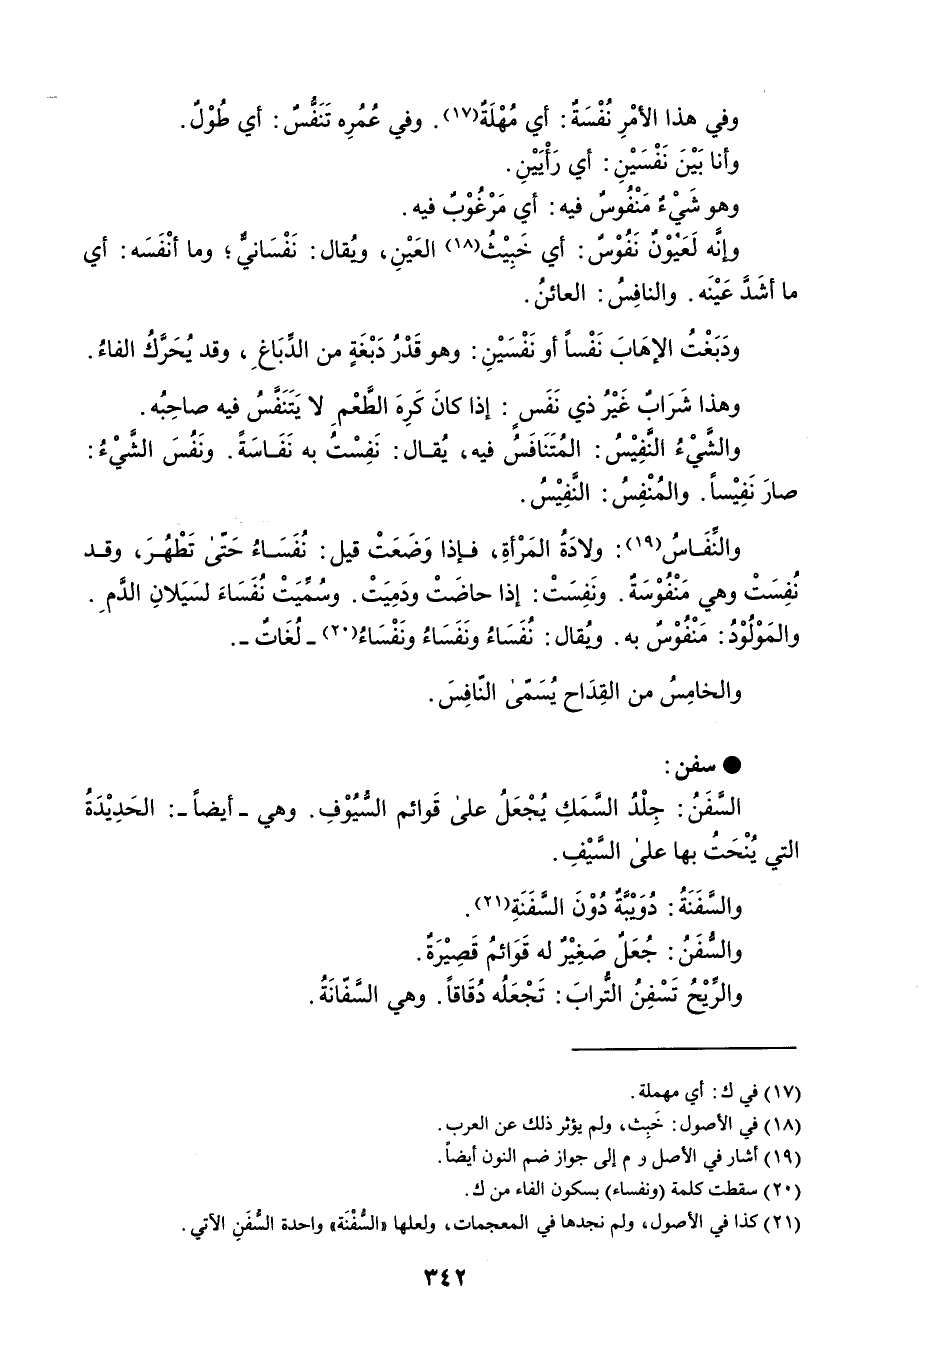 وفي هذا الأمْرِ نُفْسَةٌ: أي مُهْلَةٌ(١٧). وفي عُمُرِه تَنَفُّسٌ: أي طُوْلٌ.
وأنا بَيْنَ نَفْسَيْنِ: أي رَأْيَيْنِ.
وهو شَيْءٌ مَنْفُوسٌ فيه: أي مَرْغُوْبٌ فيه.
وإنَّه لَعَيُوْنٌ نَفُوْسٌ: أي خَبِيْثُ(١٨) العَيْنِ، ويُقال: نَفْسَانيٌّ؛ وما أنْفَسَه: أي
ما أشَدَّ عَيْنَه. والنافِسُ: العائنُ.
ودَبَغْتُ الإهَابَ نَفْساً أو نَفْسَيْنِ: وهو قَدْرُ دَبْغَةٍ من الدِّبَاغِ، وقد يُحَرَّكُ الفاءُ.
وهذا شَرَابٌ غَيْرُ ذي نَفَسٍ: إذا كانَ كَرِهَ الطَّعْمِ لا يَتَنَفَّسُ فيه صاحِبُه.
والشَّيْءُ النَّفِيْسُ: المُتَنَافَسُ فيه، يُقال: نَفِسْتُ به نَفَاسَةً. ونَفُسَ الشَّيْءُ:
صارَ نَفِيْساً. والمُنْفِسُ: النَّفِيْسُ.
والنِّفَاسُ(١٩): ولادَةُ المَرْأةِ، فإذا وَضَعَتْ قيل: نُفَسَاءُ حَتّىٰ تَطْهُرَ، وقد
نُفِسَتْ وهي مَنْفُوْسَةٌ. ونَفِسَتْ: إذا حاضَتْ ودَمِيَتْ. وسُمِّيَتْ نُفَسَاءَ لسَيَلانِ الدَّمِ.
والمَوْلُوْدُ: مَنْفُوْسٌ به. ويُقال: نُفَسَاءُ ونَفَسَاءُ ونَفْسَاءُ(٢٠) ـ لُغَاتٌ ـ.
والخامِسُ من القِدَاحِ يُسَمّىٰ النّافِسَ.
● سفن:
السَّفَنُ: جِلْدُ السَّمَكِ يُجْعَلُ علىٰ قَوائم السُّيُوْفِ. وهي ـ أيضاً ـ: الحَدِيْدَةُ
التي يُنْحَتُ بها علىٰ السَّيْفِ.
والسَّفَنَةُ: دُوَيْبَّةٌ دُوْنَ السَّفَنَةِ(٢١).
والسُّفَنُ: جُعَلٌ صَغِيْرٌ له قَوَائمُ قَصِيْرَةٌ.
والرِّيْحُ تَسْفِنُ التُّرابَ: تَجْعَلُه دُقَاقاً. وهي السَّفّانَةُ.
(١٧) في ك: أي مهملة.
(١٨) في الأصول: خَبِث، ولم يؤثر ذلك عن العرب.
(١٩) أشار في الأصل و م إلى جواز ضم النون أيضاً.
(٢٠) سقطت كلمة (ونفساء) بسكون الفاء من ك.
(٢١) كذا في الأصول، ولم نجدها في المعجمات، ولعلها «السُّفْنَة» واحدة السُّفَنِ الآتي.
٣٤٢